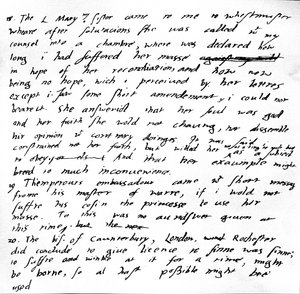 18. The L. Mary my sister came to me to whestmuster
wheare after salutacions she was called with my
counsel into a chambre, where was declared how
long i had suffered her masse
in hope of her reconciliation, and how now
being no hope, wich i perceived by her lettres
except i saw some short amendement, i could not
beare it. she answerid that her soul was god
and her faith she wold not chaung, nor dissemble
hir opinion with contrary doinges. It was
constrained not her faith, but willed her
to obey And that her exaumple might
breed to much inconvenience.
19. Themperours embassadour came with short messag
from his master of warre, if i wold not
suffre his cosin the princesse to use her
masse. To this was no aunswer geven at
this time,
20. The bish. of Caunterbury, London, Rochester
did conclude to give licence to sinne was sinne;
to suffre and winke at it for a time might
be borne, so al hast possible might bee
used